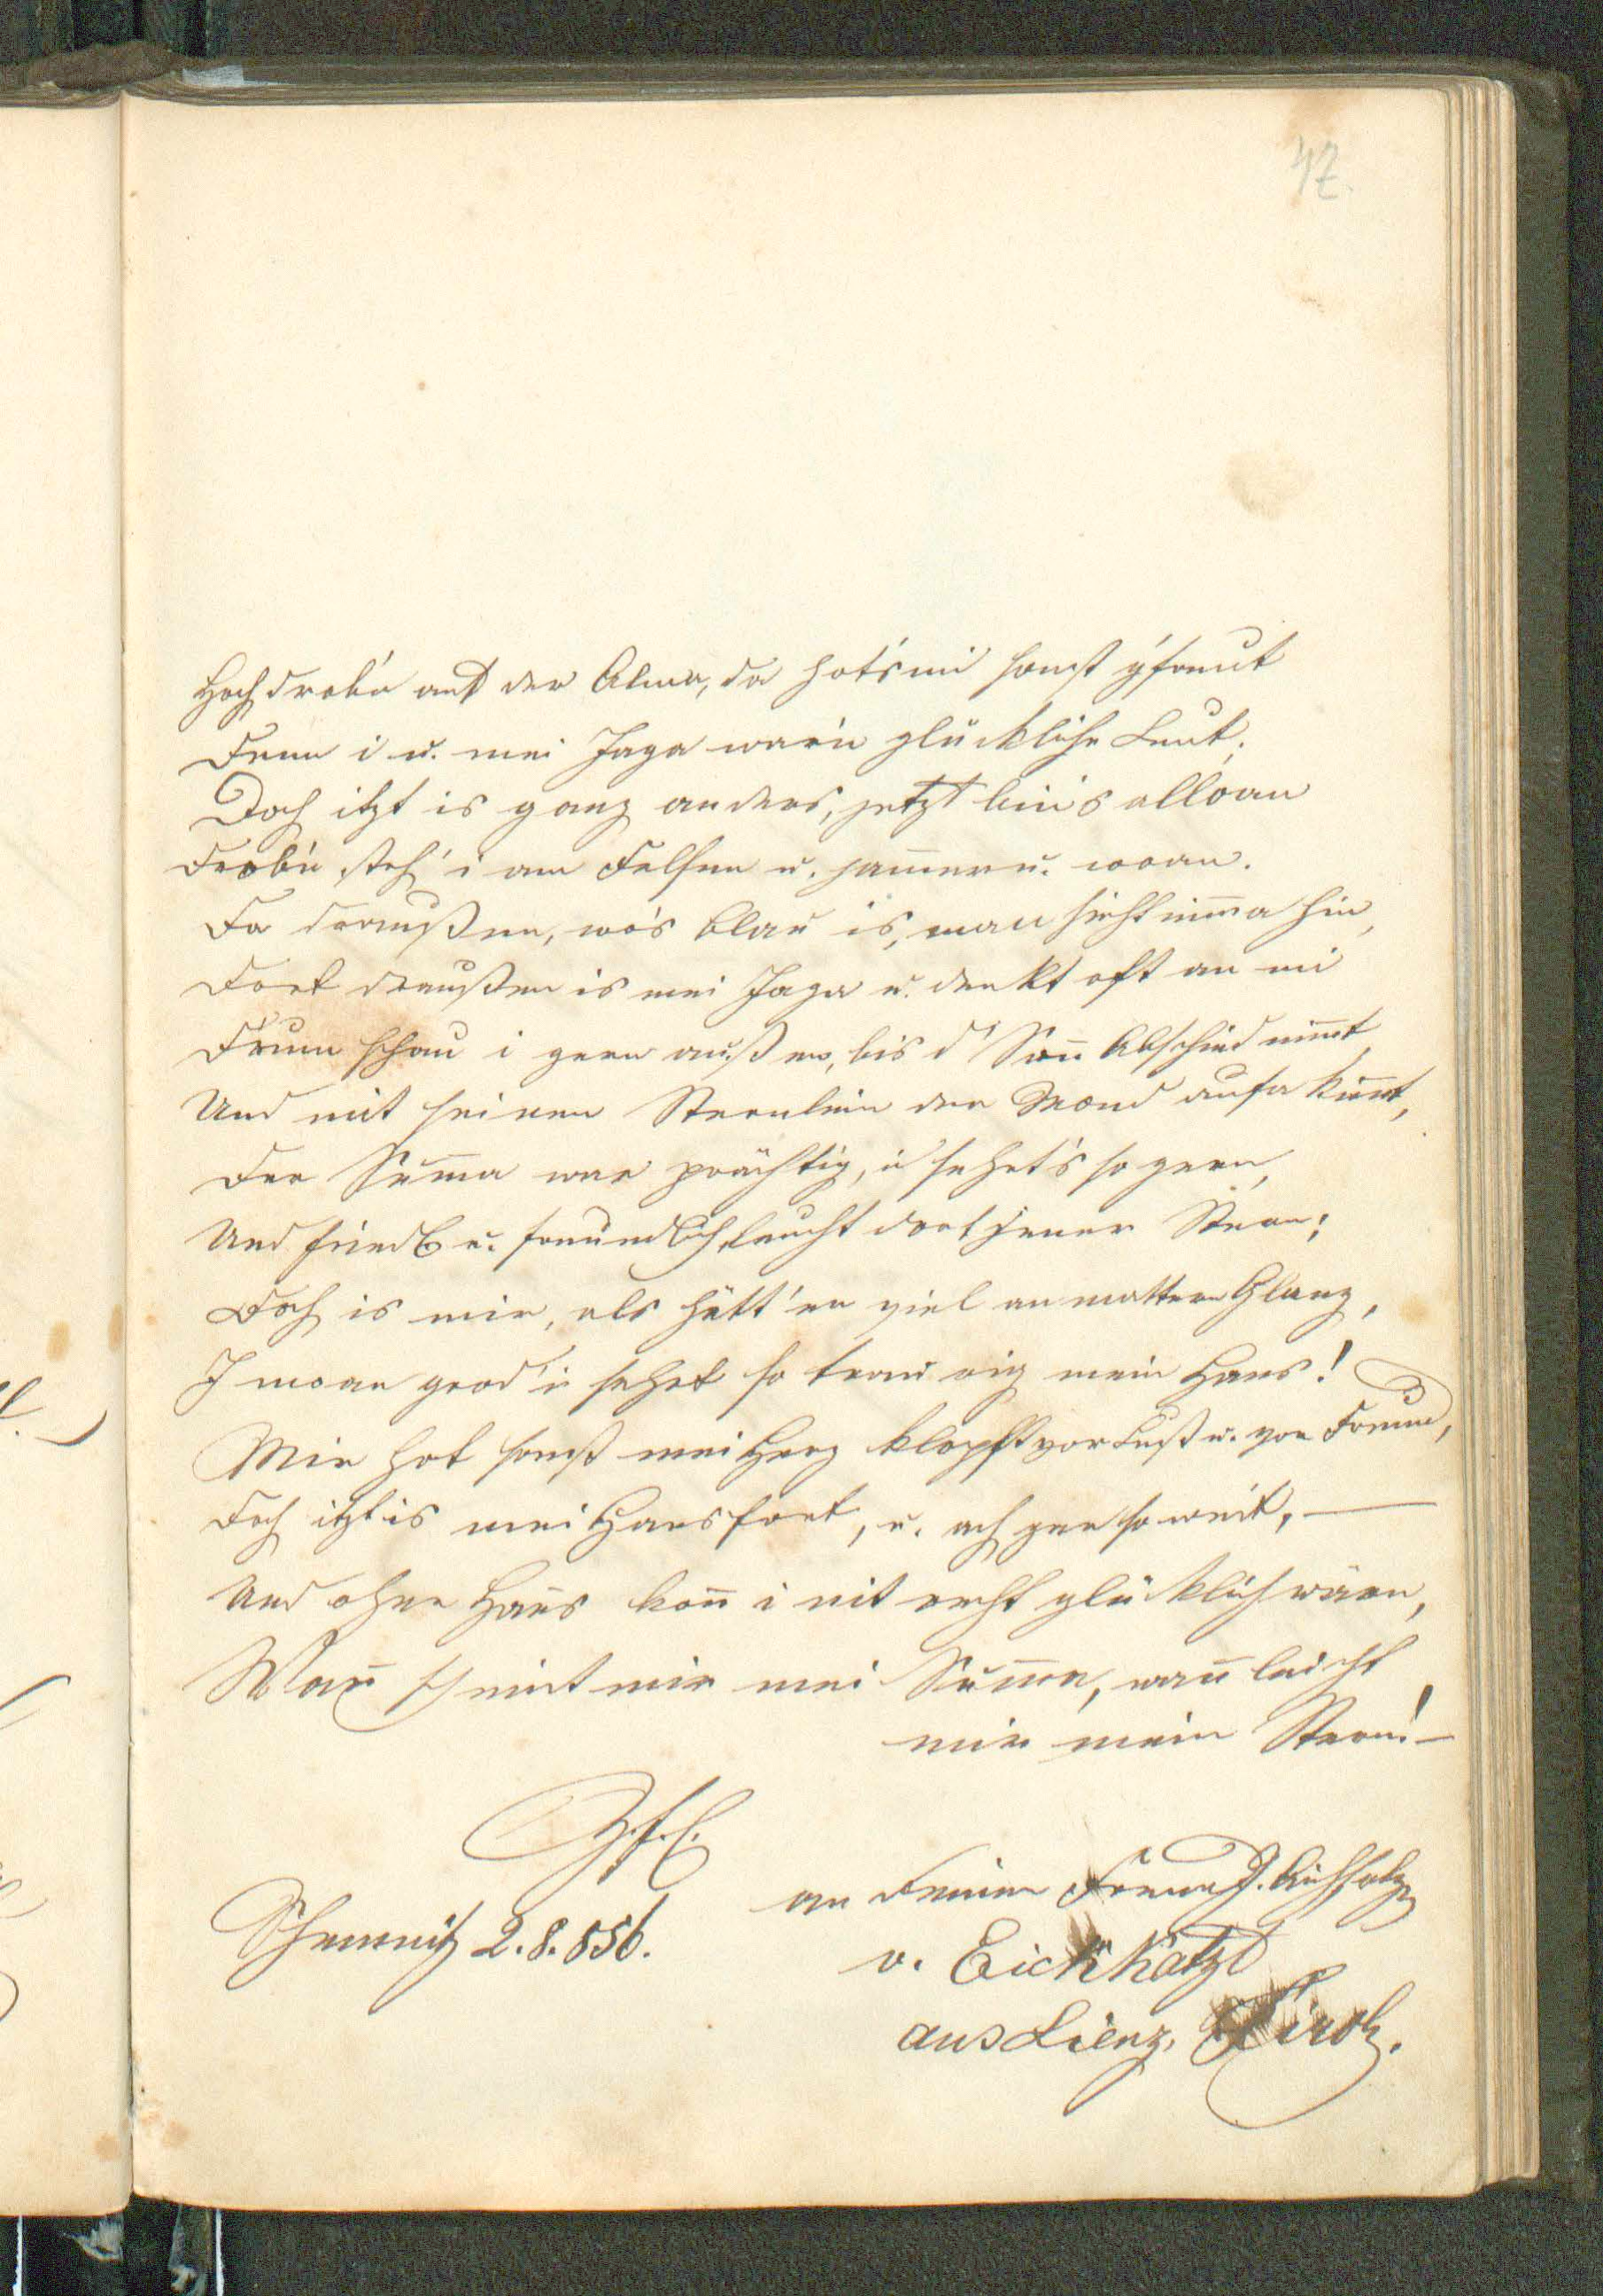 47.
Hoch drob'n auf der Alma, da hot's mi sonst g'freut
Denn i u. mei Jaga war'n glückliche Leut;
Doch itzt is ganz anders, jetzt bin's alloan
Drob'n steh' i am Felsen u. jam̅er u. woan.
Da draußen, wo's blau is, man sieht im̅a hin,
Dort draußen is mei Jaga u. denkt oft an mi
D'rum schau i gern außen, bis d' Son̅ Abschied nim̅t,
Und mit seinen Sternlein der Mond aufa kim̅t,
Der Sum̅a war prächtig, i sehet's so gern,
Und friedli u. freundlich, leucht dort jener Stern;
Doch is mir, als hätt' er viel an mattern Glanz,
I moan grod i sehet so traurig mein Hans!
Mir hot sonst mei Herz klopft vor Lust u. vor Freud,
Doch itzt is mei Hans fort, u. ach gar so weit, —
Und ohne Hans kon̅ i nit recht glücklich wärn,
Wan̅ scheint mir mei Sun̅a, wan̅ leicht
mir mein Stern! —
Schemnitz 2.8.856.
an seinen Freund J. Aichholz
v. Eichkatzl
aus Lienz, Tirol.